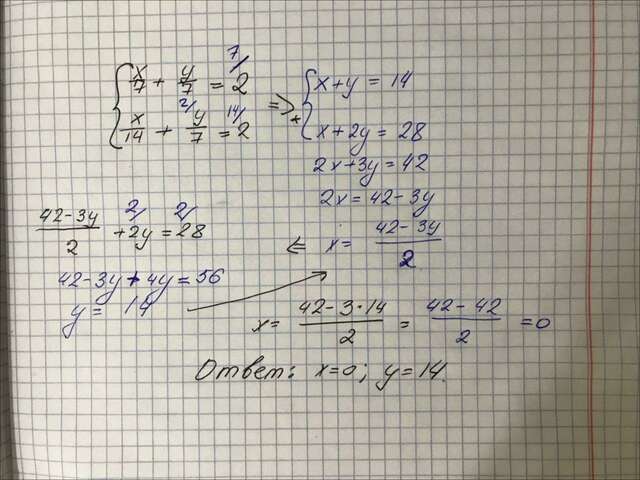 x/7 + y/7 = 2 7/
x/14 + 2/ y/7 = 2 14/
=> + x+y = 14
x+2y = 28
2x+3y = 42
2x = 42-3y
<= x = (42-3y)/2
(42-3y)/2 + 2y 2/ = 28 2/
42-3y+4y=56
y = 14
x = (42-3·14)/2 = (42-42)/2 = 0
Ответ: x=0; y=14.